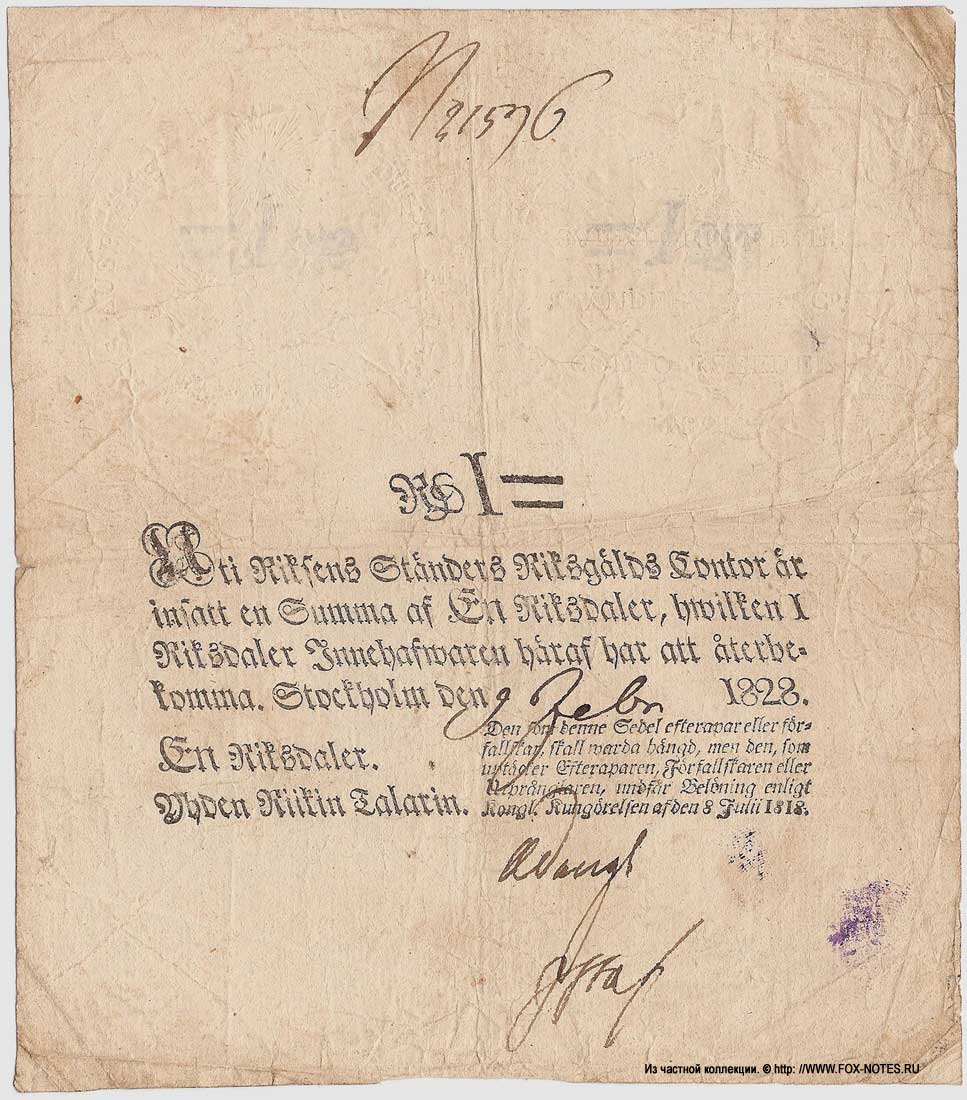 N 21576
RS I =
Uti Riksens Ständers Riksgälds Contor är
insatt en Summa af En Riksdaler, hwilken I
Riksdaler Innehafwaren häraf har att återbe-
komma. Stockholm den 9 Febr 1828.
En Riksdaler.
Yhden Riikin Talarin.
Den som denne Sedel efterapar eller för-
fallskar, skall warda hängd, men den, som
uptäcker Efteraparen, Förfallskaren eller
Utprånglaren, undfår Belöning enligt
Kongl. Kungörelsen af den 8 Julii 1818.
Из частной коллекции. © http: //WWW.FOX-NOTES.RU